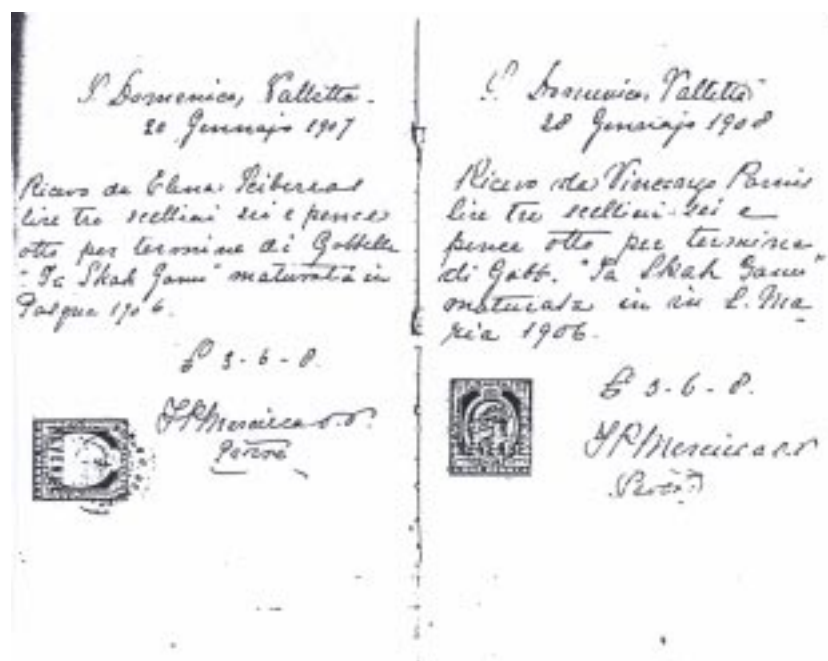 S. Domenico, Valletta.
20 Gennajo 1907
Ricevo da Elena
lire tre scellini sei e pence
otto per termine di Gabbella
"Ta Skak Ganu" maturata in
Pasqua 1906.
£ 3-6-8.
REVENUE
S. Domenico, Valletta
28 Gennajo 1908
Ricevo da Vincenzo
lire tre scellini sei e
pence otto per termine
di Gabb. "Ta Skak Ganu"
maturata in in S. Ma
ria 1906.
£ 3-6-8.